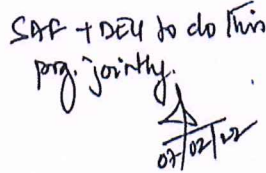 SAF + DEU to do this
prg. jointly.
07/02/22